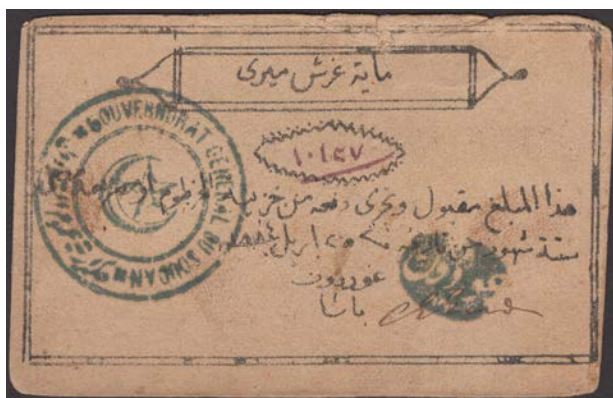 ماية غرش ميرى
GOUVERNORAT GENERAL DU SOUDAN
١٠١٤٧
هذا المبلغ مقبول وتجرى دفعه من خزينة الخرطوم او مصر بعد مضى
ستة شهور من تاريخه ٢٥ ابريل ١٨٨٤
غوردون
باشا